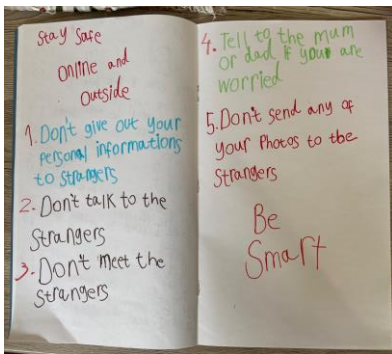 Stay Safe
Online and
Outside
1. Don't give out your
personal informations
to strangers
2. Don't talk to the
Strangers
3. Don't meet the
Strangers
4. Tell to the mum
or dad if your are
worried
5. Don't send any of
your Photos to the
Strangers
Be
Smart